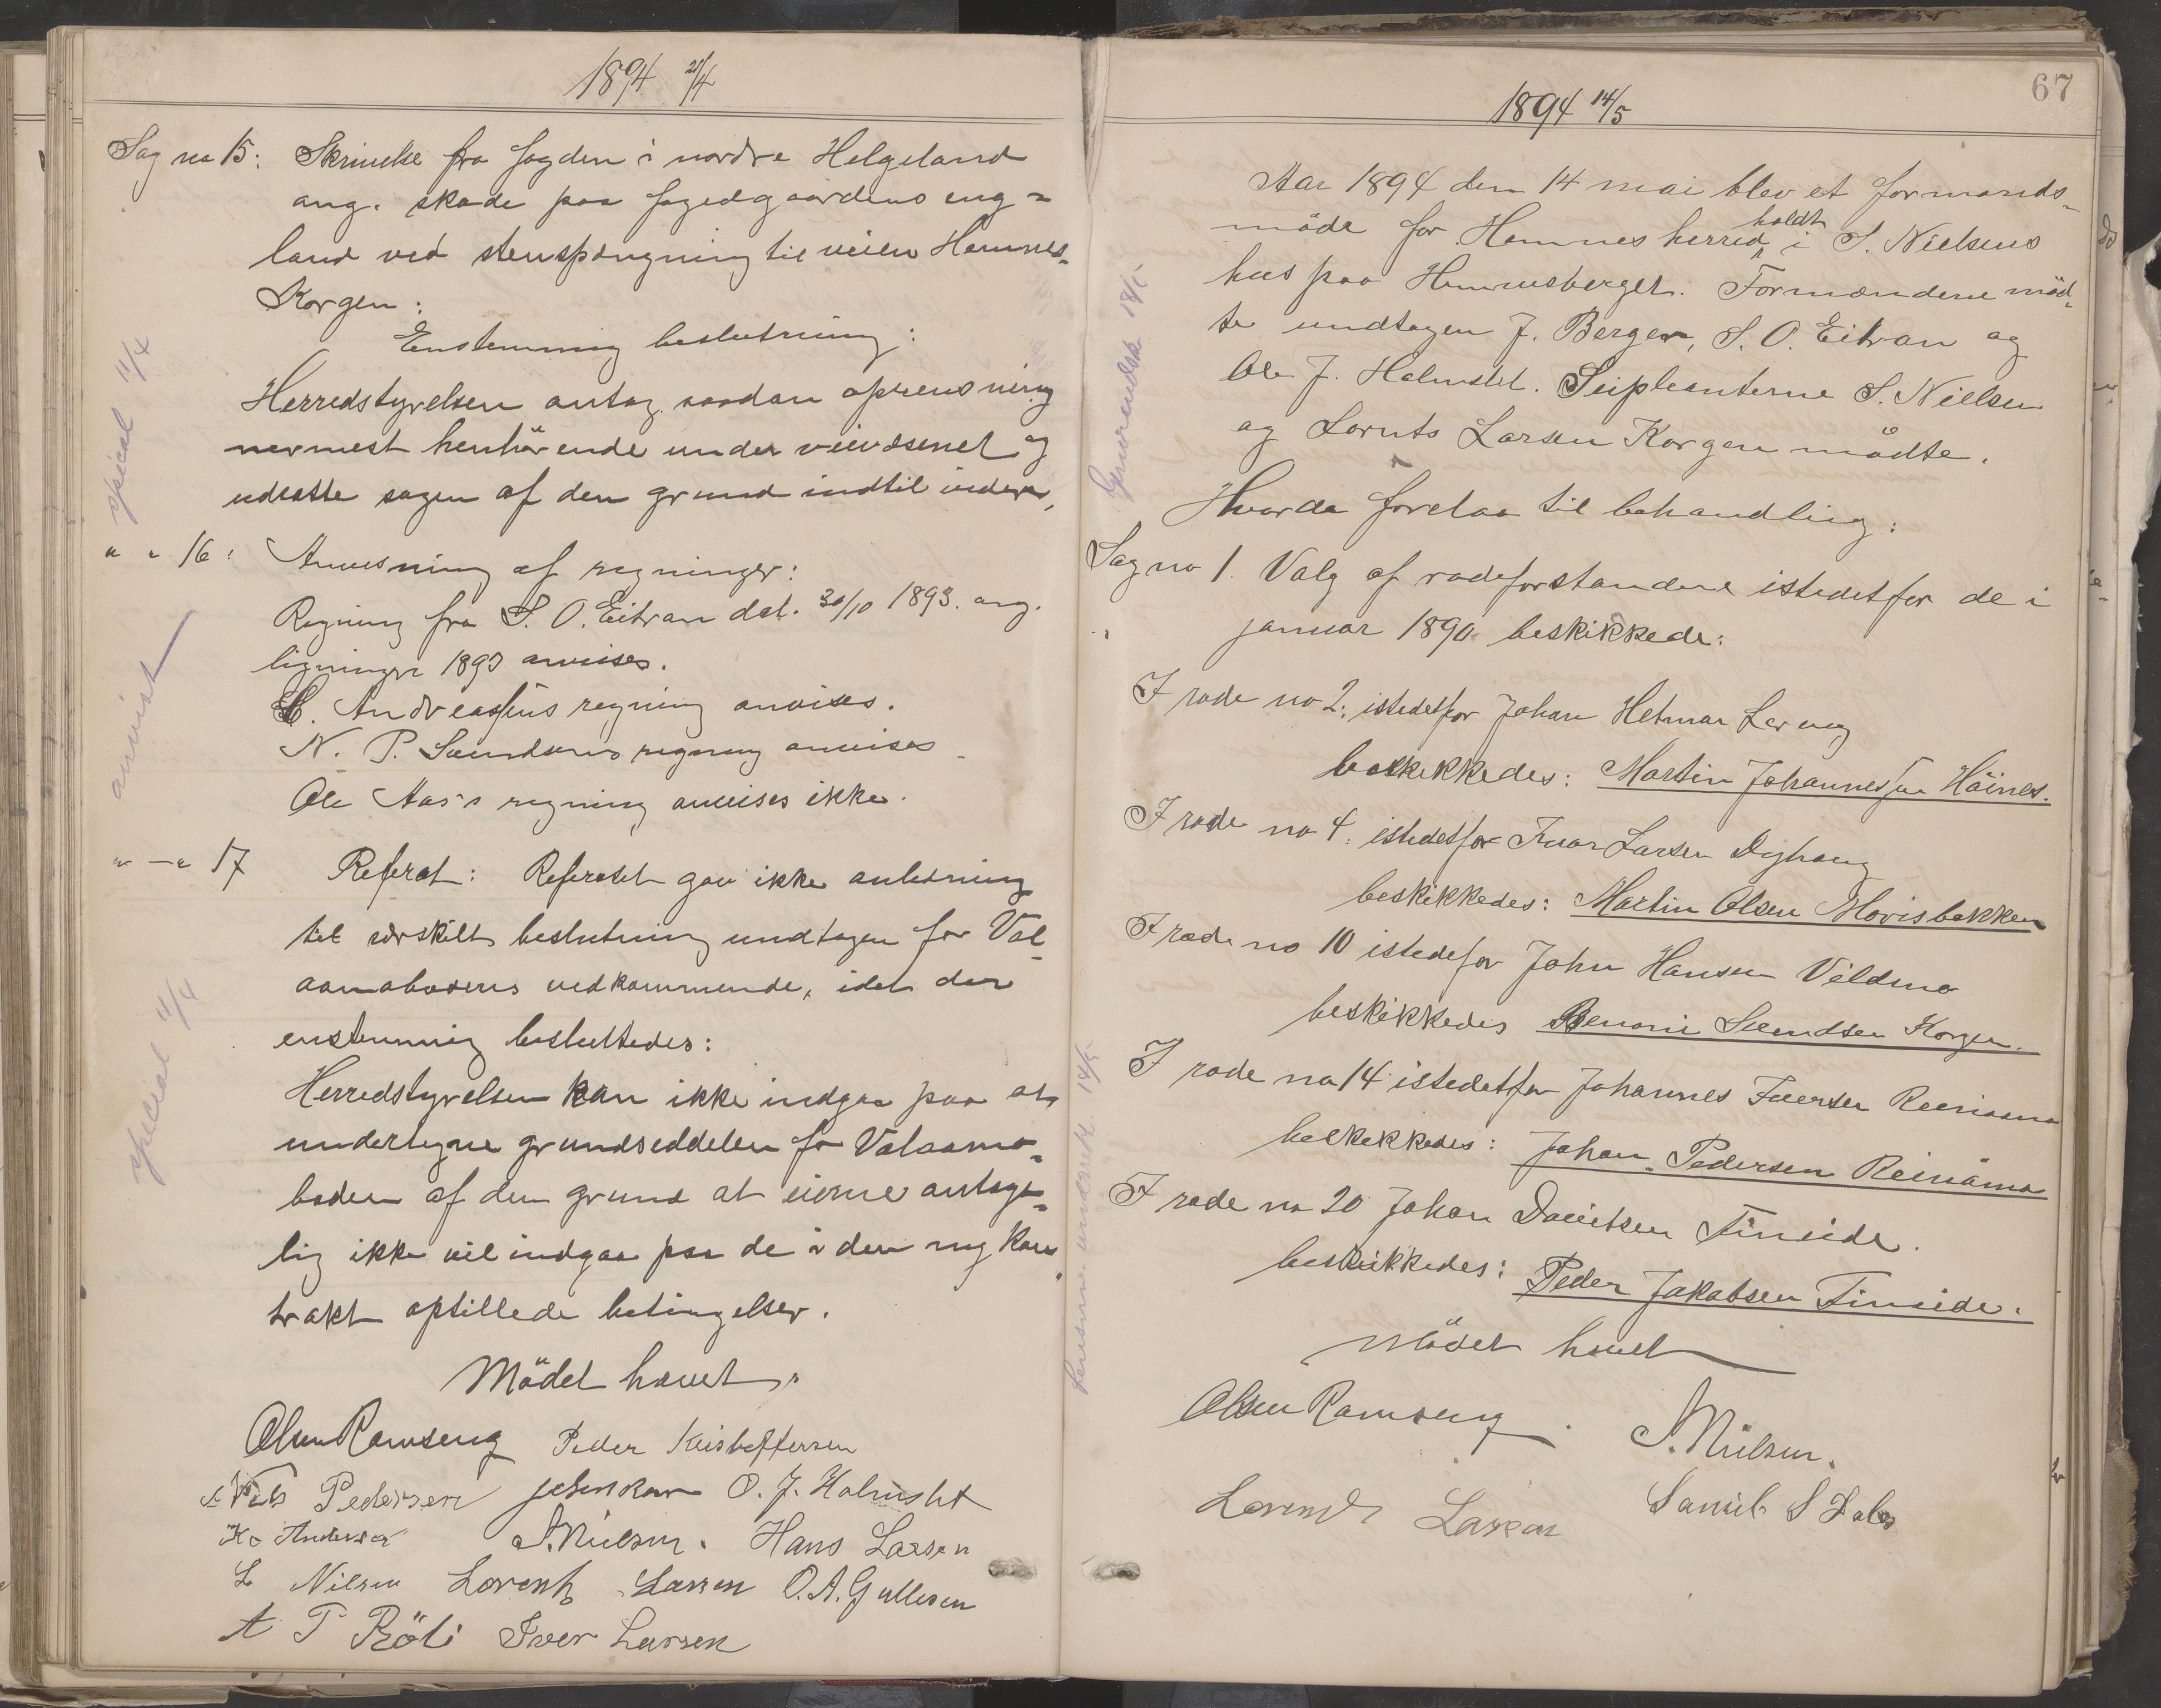 1894 21/4
Sag no 15: Skrivelse fra fogden i nordre Helgeland
ang. skade paa fogedgaardens eng-
land ved stenspængning til veien Hemnes-
Korgen:
Enstemmig beslutning:
Herredstyrelsen antog saadan oprensning
nermest henhörende under veivæsenet og
udsatte sagen af den grund indtil videre.
" " 16: Anvisning af regninger:
Regning fra S. O. Eitran dat. 30/10 1893. ang.
ligningen 1893 anvises.
H. Andreassens regning anvises.
N. P. Svendsens regning anvises
Ole Aas's regning anvises ikke.
" — " 17 Referat: Referatet gav ikke anledning
til særskilt beslutning undtagen for Val-
aamoboderns vedkommende, idet der
enstemmig besluttedes:
Herredstyrelsen kan ikke indgaa paa at
undertegne grundseddelen for Valaamo-
boden af den grund at eierne antage-
lig ikke vil indgaa paa de i den ny kon-
trakt opstillede betingelser.
Mödet hævet.
Olsen Ramseng Peder Kristoffersen
Nils Pedersen O. J. Holmslet
K. Andersen S. Nielsen. Hans Larsen
L Nilsen Lorents Larsen O. A. Gullesen
A P Röli Iver Larsen
special 11/4
anvist
special 11/4
67
1894 14/5
Aar 1894 den 14 mai blev et formands-
möde for Hemnes herred holdt i S. Nielsens
hus paa Hemnesberget. Formændene möd-
te undtagen J. Berger, S. O. Eitran og
Ole J. Holmslet. Suppleanterne S. Nielsen
og Lornts Larsen Korgen mödte.
Hvorda forelaa til behandling:
Sag no 1. Valg af rodeforstandere istedetfor de i
januar 1890 beskikkede:
I rode no 2: istedetfor Johan Hetman Lerveg
beskikkedes: Martin Johannessen Höines.
I rode no 4. istedetfor Ivar Larsen Dyhaug
beskikkedes: Martin Olsen Movisbakken
I rode no 10 istedefor John Hansen Vildmo
beskikkedes Benoni Svendsen Korgen.
I rode no 14 istedetfor Johannes Iversen Reinaamo
beskikkedes: Johan Pedersen Reinåmo
I rode no 20 Johan Danielsen Fineide.
beskikkedes: Peder Jakobsen Fineide.
Mödet hævet
Olsen Ramseng. S. Nielsen.
Lorents Larsen